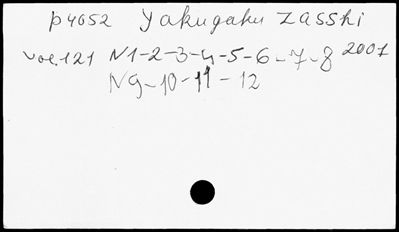 p4052 Yakugaku Zasshi
vol.121 N1-2-3-4-5-6-7-8 2001
N9-10-11-12